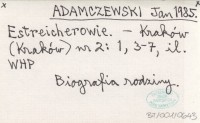 ADAMCZEWSKI Jan 1985.
Estreicherowie. - Kraków
(Kraków) nr 2: 1, 3-7, il.
WHP
Biografia rodziny.
BJ/001/0645